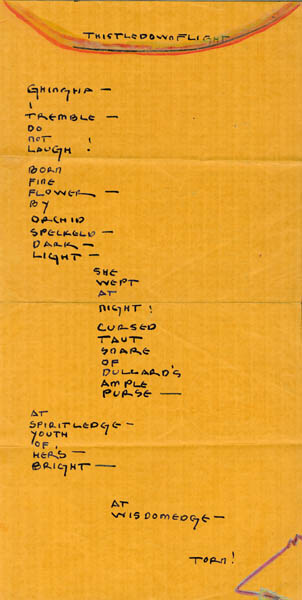 THISTLEDOWNFLIGHT
GHINGHA —
I
TREMBLE —
DO
NOT
LAUGH !
BORN
FIRE
FLOWER —
BY
ORCHID
SPELKELD —
DARK —
LIGHT —
SHE
WEPT
AT
NIGHT !
CURSED
TAUT
SNARE
OF
DULLARD'S
AMPLE
PURSE —
AT
SPIRITLEDGE —
YOUTH
OF
HERS —
BRIGHT —
AT
WISDOMEDGE —
TORN !